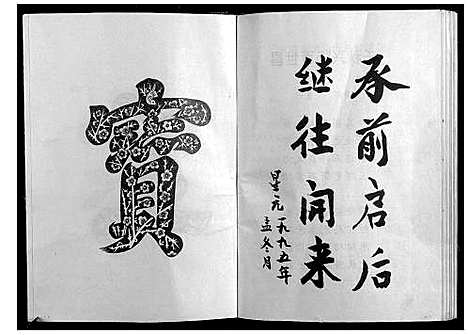 承前启后
继往开来
星元一九九五年
孟冬月
寳